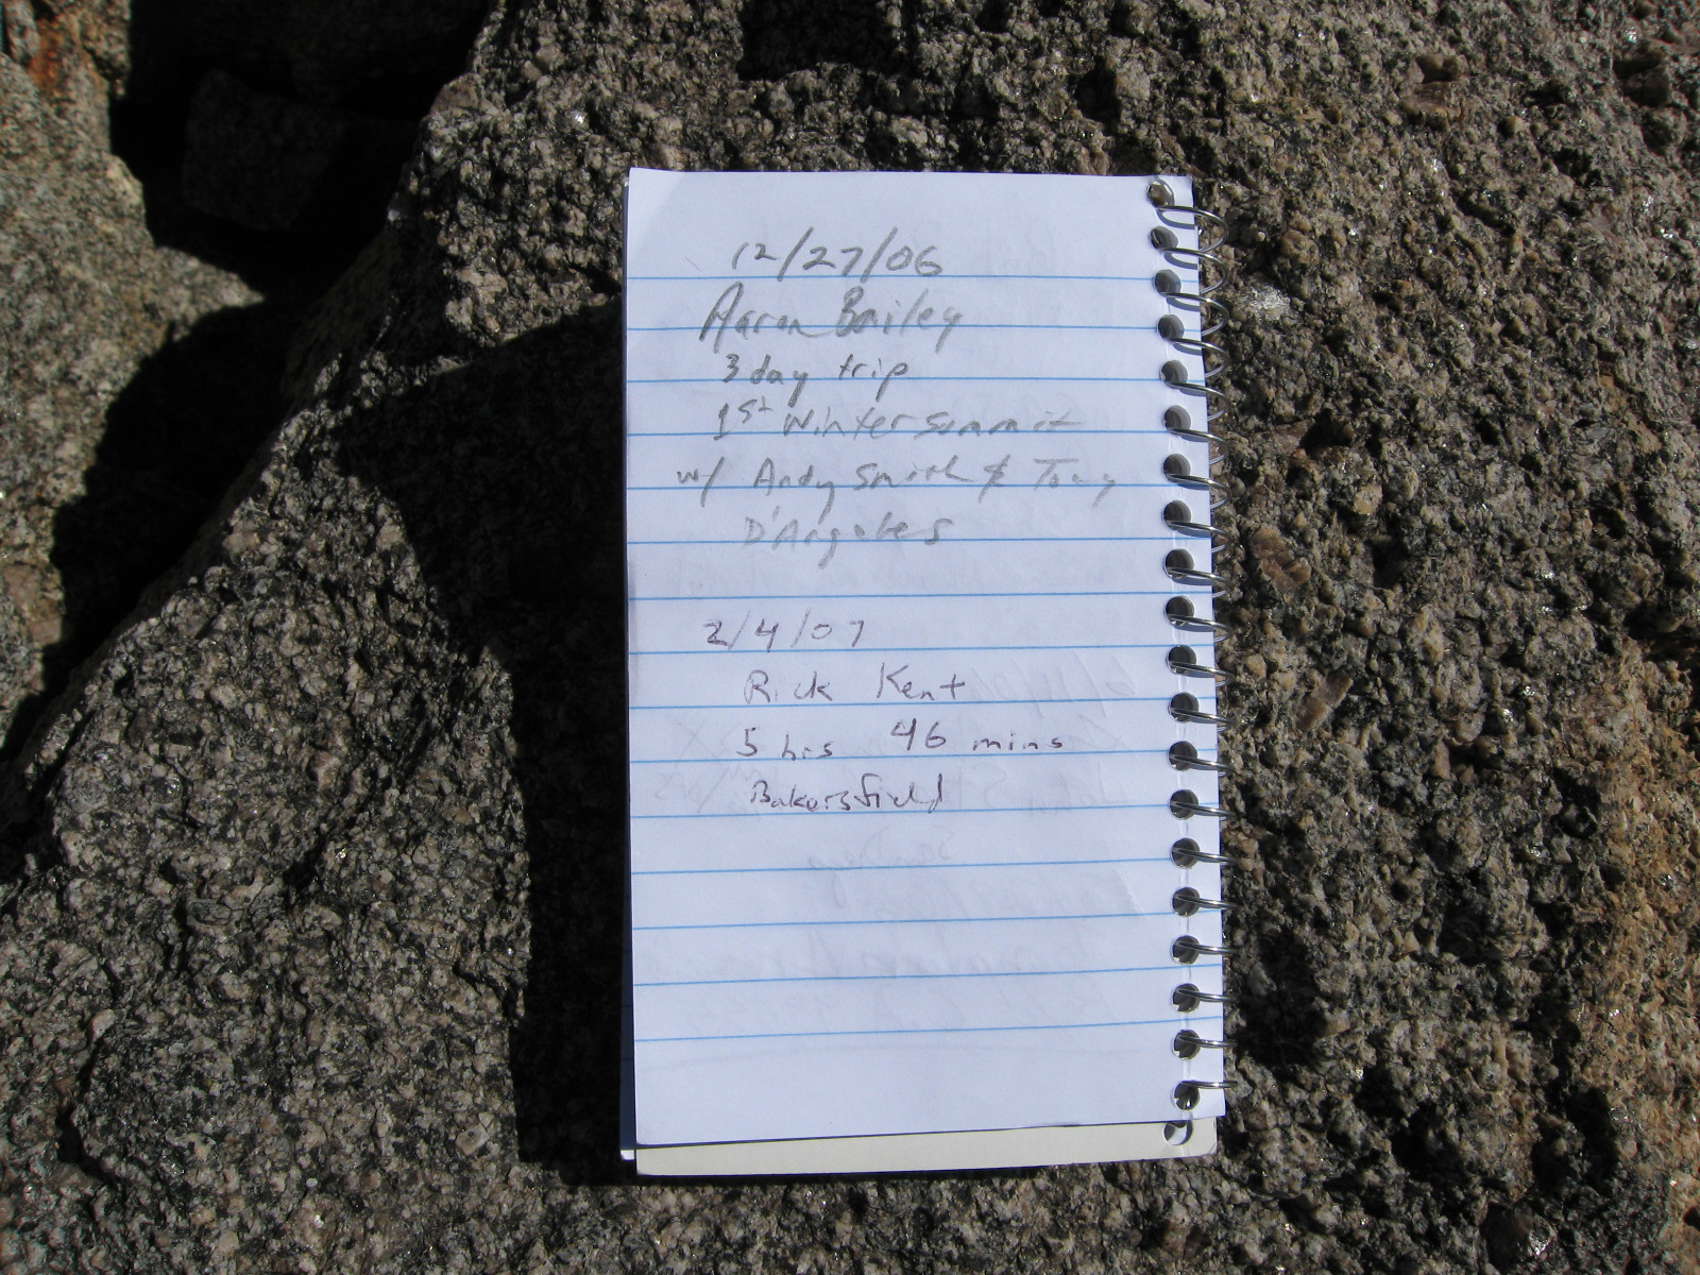 12/27/06
Aaron Bailey
3 day trip
1st Winter summit
w/ Andy Smith & Tony
2/4/07
Rick Kent
5 hrs 46 mins
Bakersfield